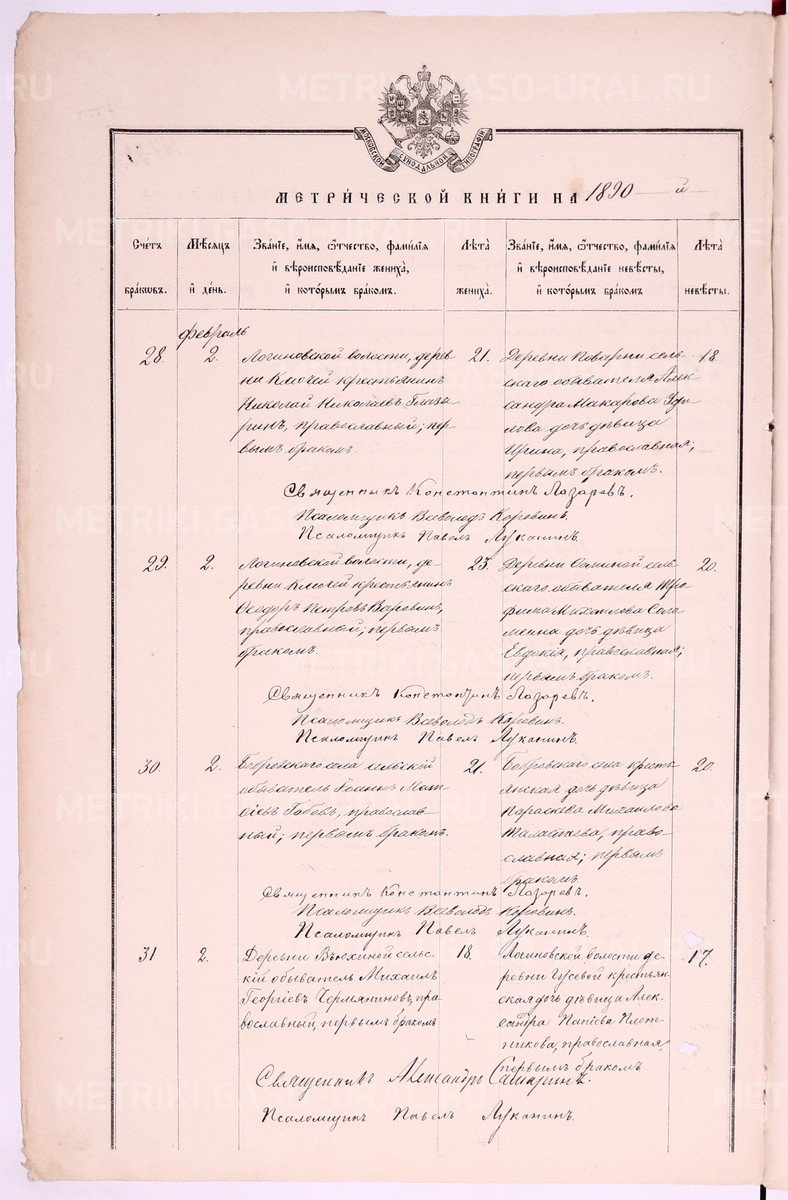 МОСКОВСКОЙ СѴНОДАЛЬНОЙ ТИПОГРАФІИ
МЕТРИ́ЧЕСКОЙ КНИ́ГИ НА 1890 й
Сче́тъ
бра́кωвъ.
Мѣ́сѧцъ
и҆ де́нь.
Зва́нїе, и҆́мѧ, ѻ҆́тчество, фами́лїѧ
и҆ вѣроисповѣ́данїе жениха̀,
и҆ кото́рымъ бра́комъ.
Лѣ̑та
жениха̀.
Зва́нїе, и҆́мѧ, ѻ҆́тчество, фами́лїѧ
и҆ вѣроисповѣ́данїе невѣ́сты,
и҆ кото́рымъ бра́комъ
Лѣ̑та
невѣ́сты.
Февраль
28.
2.
Логиновской волости, дерев-
ни Ключей крестьянинъ
Николай Николаевъ Глазы-
ринъ, православный; пер-
вымъ бракомъ.
21.
Деревни Поварни сель-
скаго обывателя Алек-
сандра Макарова
лова дочь дѣвица
Ирина, православная;
первымъ бракомъ.
18
Священникъ Константинъ Лазаревъ.
Псаломщикъ Всеволодъ Коровинъ.
Псаломщикъ Павелъ Луканинъ.
29.
2.
Логиновской волости, де-
ревни Ключей крестьянинъ
Ѳеодоръ Петровъ
православный; первымъ
бракомъ.
23.
Деревни сель-
скаго обывателя Тро-
фима Михаилова Сала-
матина дочь дѣвица
Евдокія, православная;
первымъ бракомъ.
20.
Священникъ Константинъ Лазаревъ.
Псаломщикъ Всеволодъ Коровинъ.
Псаломщикъ Павелъ Луканинъ.
30.
2.
Бобровскаго села сельскій
обыватель Іоаннъ Мат-
ѳіевъ православ-
ный; первымъ бракомъ.
21.
Бобровскаго села кресть-
янская дочь дѣвица
Параскева Михаилова
право-
славная; первымъ
бракомъ
20.
Священникъ Константинъ Лазаревъ.
Псаломщикъ Всеволодъ Коровинъ.
Псаломщикъ Павелъ Луканинъ.
31
2.
Деревни Вьюхиной сель-
скій обыватель Михаилъ
Георгіевъ Чермяниновъ, пра-
вославный, первымъ бракомъ
18.
Логиновской волости де-
ревни Гусевой крестьян-
ская дочь дѣвица Алек-
сандра Плот-
никова, православная,
первымъ бракомъ
17.
Священникъ Александръ
Псаломщикъ Павелъ Луканинъ.
METRIKI.GASO-URAL.RU